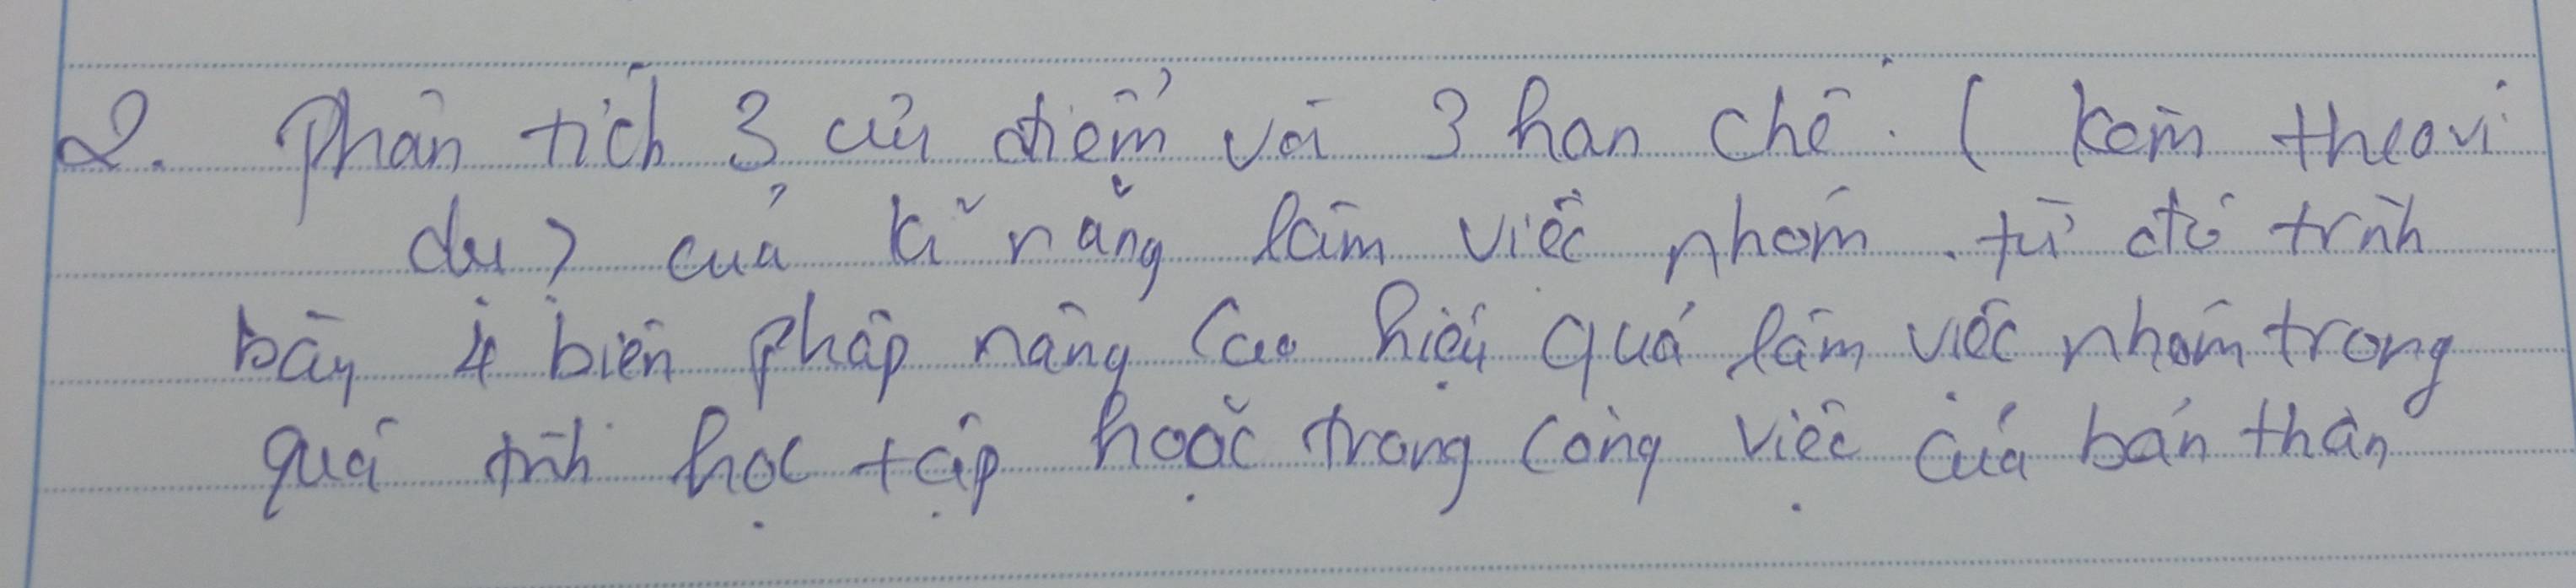 2. Phân tích 3 ưu điểm và 3 hạn chế. ( kèm theo ví
dụ ) của kĩ năng làm việc nhóm. từ đó trình
bày 4 biện pháp nâng cao hiệu quả làm việc nhóm trong
quá trình học tập hoặc trong công việc của bản thân